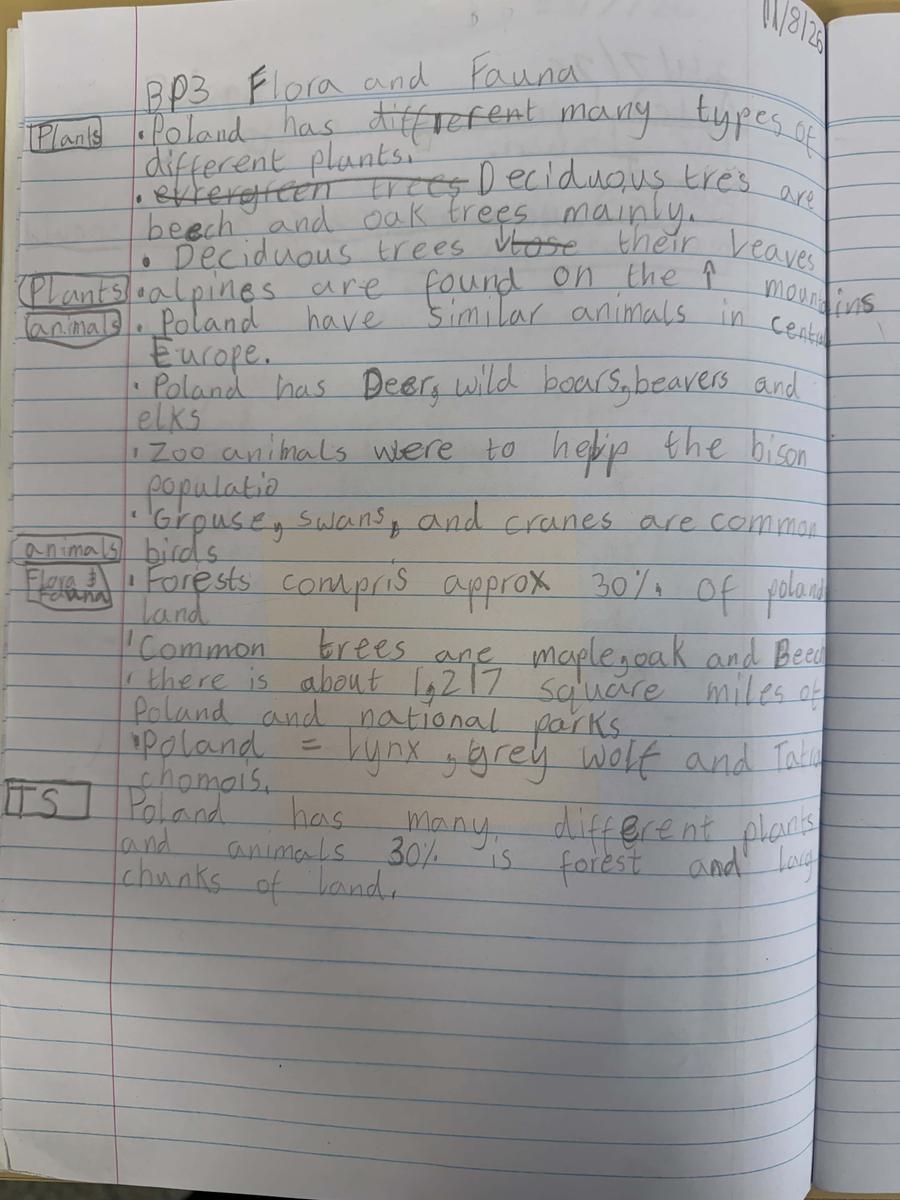 11/8/26
BP3 Flora and Fauna
Plants • Poland has different many types of
different plants.
• evergreen trees Deciduous tres are
beech and oak trees mainly.
• Deciduous trees lose their leaves
Plants • alpines are found on the ↑ mountains
animals • Poland have similar animals in central
Europe.
• Poland has Deer, wild boars, beavers and
elks
• Zoo animals were to help the bison
populatio
• Grouse, swans, and cranes are common
animals birds
Flora & Fauna • Forests compris approx 30% of poland
land
• Common trees are maple, oak and Beech
• there is about 1,217 square miles of
Poland and national parks
• Poland = Lynx, grey wolf and Tatra
chomois.
TS Poland has many, different plants
and animals 30% is forest and larg
chunks of land.